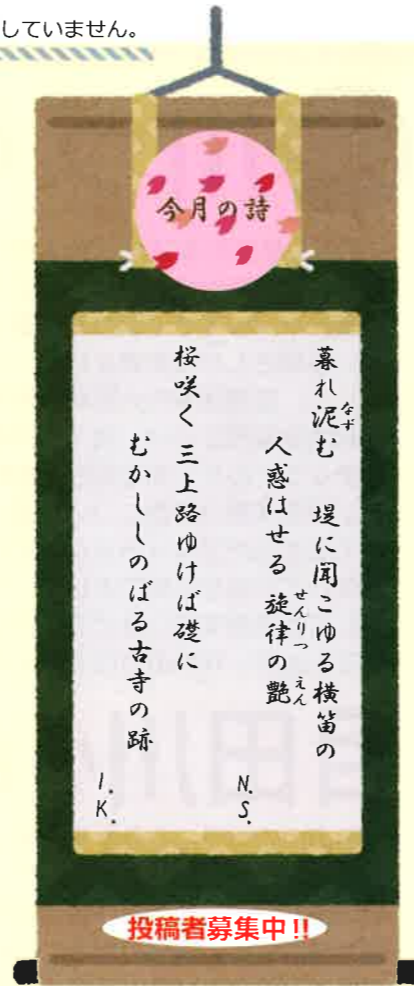 していません。
今月の詩
暮れ泥む　堤に聞こゆる横笛の
なず
人惑はせる旋律の艶
せんりつ　えん
N.S.
桜咲く三上路ゆけば礎に
むかししのばる古寺の跡
I.K.
投稿者募集中!!